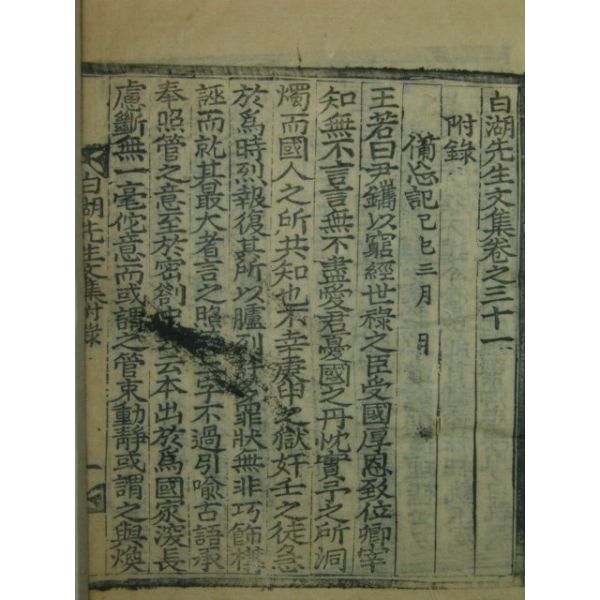 白湖先生文集卷之三十一
附錄
備忘記己巳三月 日
王若曰尹鑴以窮經世祿之臣受國厚恩致位卿宰
知無不言言無不盡愛君憂國之丹忱實予之所洞
燭而國人之所共知也不幸庚申之獄奸壬之徒急
於爲時烈報復其所以臚列 罪狀無非巧飾構
誣而就其最大者言之照 字不過引喩古語承
奉照管之意至於密劄 云本出於爲國家深長
慮斷無一毫佗意而或謂之管束動靜或謂之與煥
白湖先生文集附錄 一